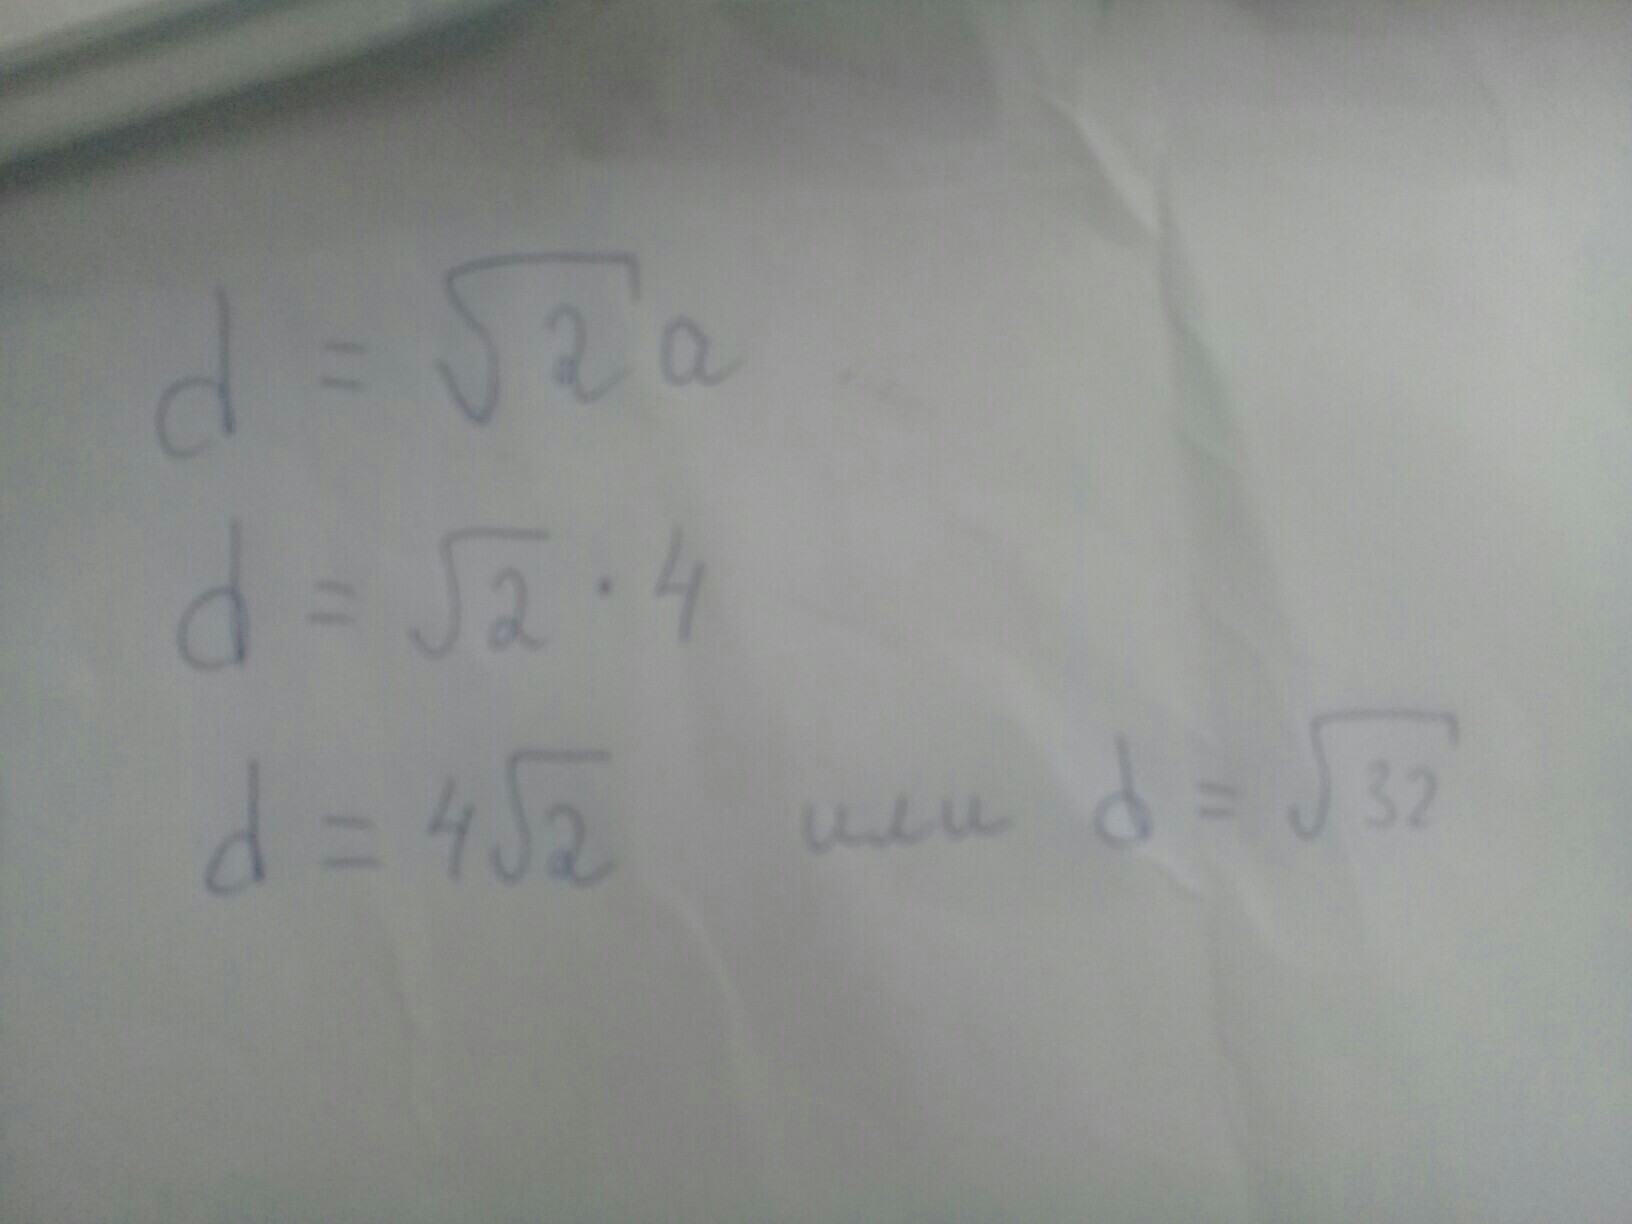 d = √2 a
d = √2 · 4
d = 4√2 или d = √32